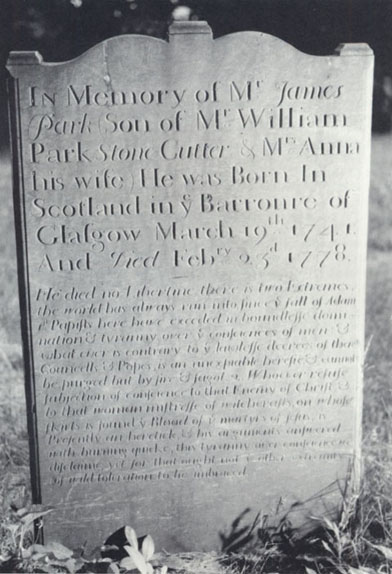 In Memory of Mr James
Park (Son of Mr William
Park Stone Cutter & Mrs Anna
his wife) He was Born In
Scotland in ye Barronre of
Glasgow March 19th 1741.
And Died Febry 23d 1778.
He died no Libertine there is two Extremes
the world has always run into since ye fall of Adam
ye Papists here have exceeded in boundlesse domi-
nation & tyranny over ye consciences of men &
what ever is contrary to ye lawlesse decrees of their
Councells & Popes, is an inexpiable heresie & cannot
be purged but by fire & fagot. Whoever refuse
subjection of conscience to that Enemy of Christ &
to that woman mistresse of witchcrafts on whose
skirts is found ye Blood of ye martyrs of Jesus, is
Presently an heretick & his arguments answered
with burning quick, this tyranny over conscience
yet for that ought not ye other
of wild toleration to be imbraced.